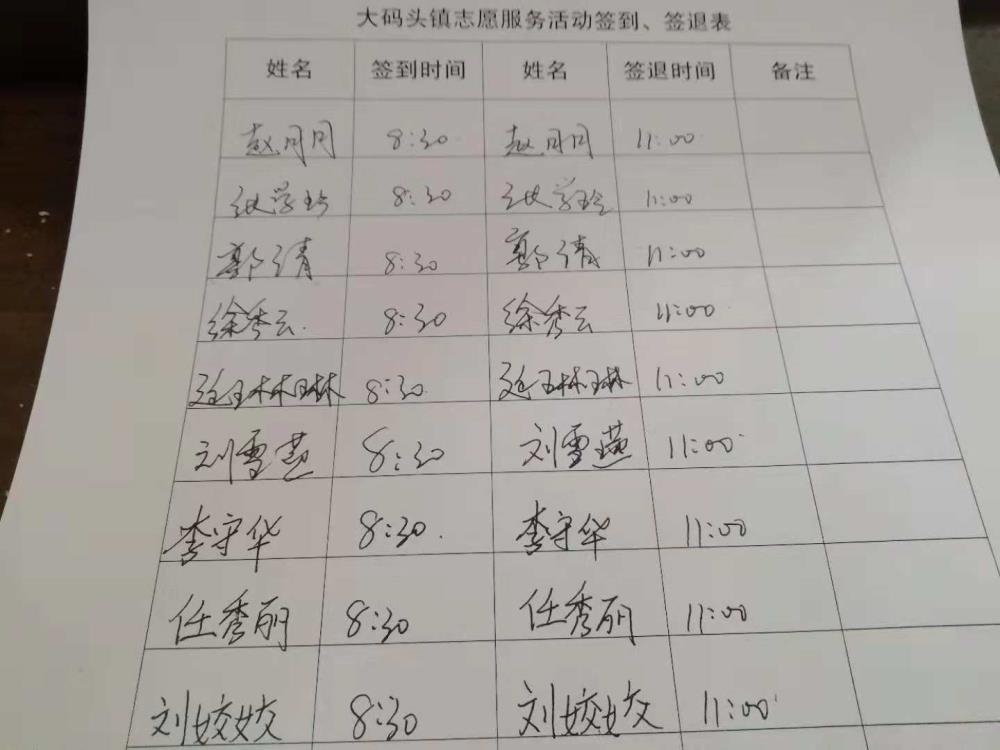 大码头镇志愿服务活动签到、签退表
姓名 签到时间 姓名 签退时间 备注
赵月月 8:30 赵月月 11:00
张学玲 8:30 张学玲 11:00
郭清 8:30 郭清 11:00
徐秀云 8:30 徐秀云 11:00
延琳琳 8:30 延琳琳 11:00
刘雪燕 8:30 刘雪燕 11:00
李守华 8:30 李守华 11:00
任秀丽 8:30 任秀丽 11:00
刘姣姣 8:30 刘姣姣 11:00